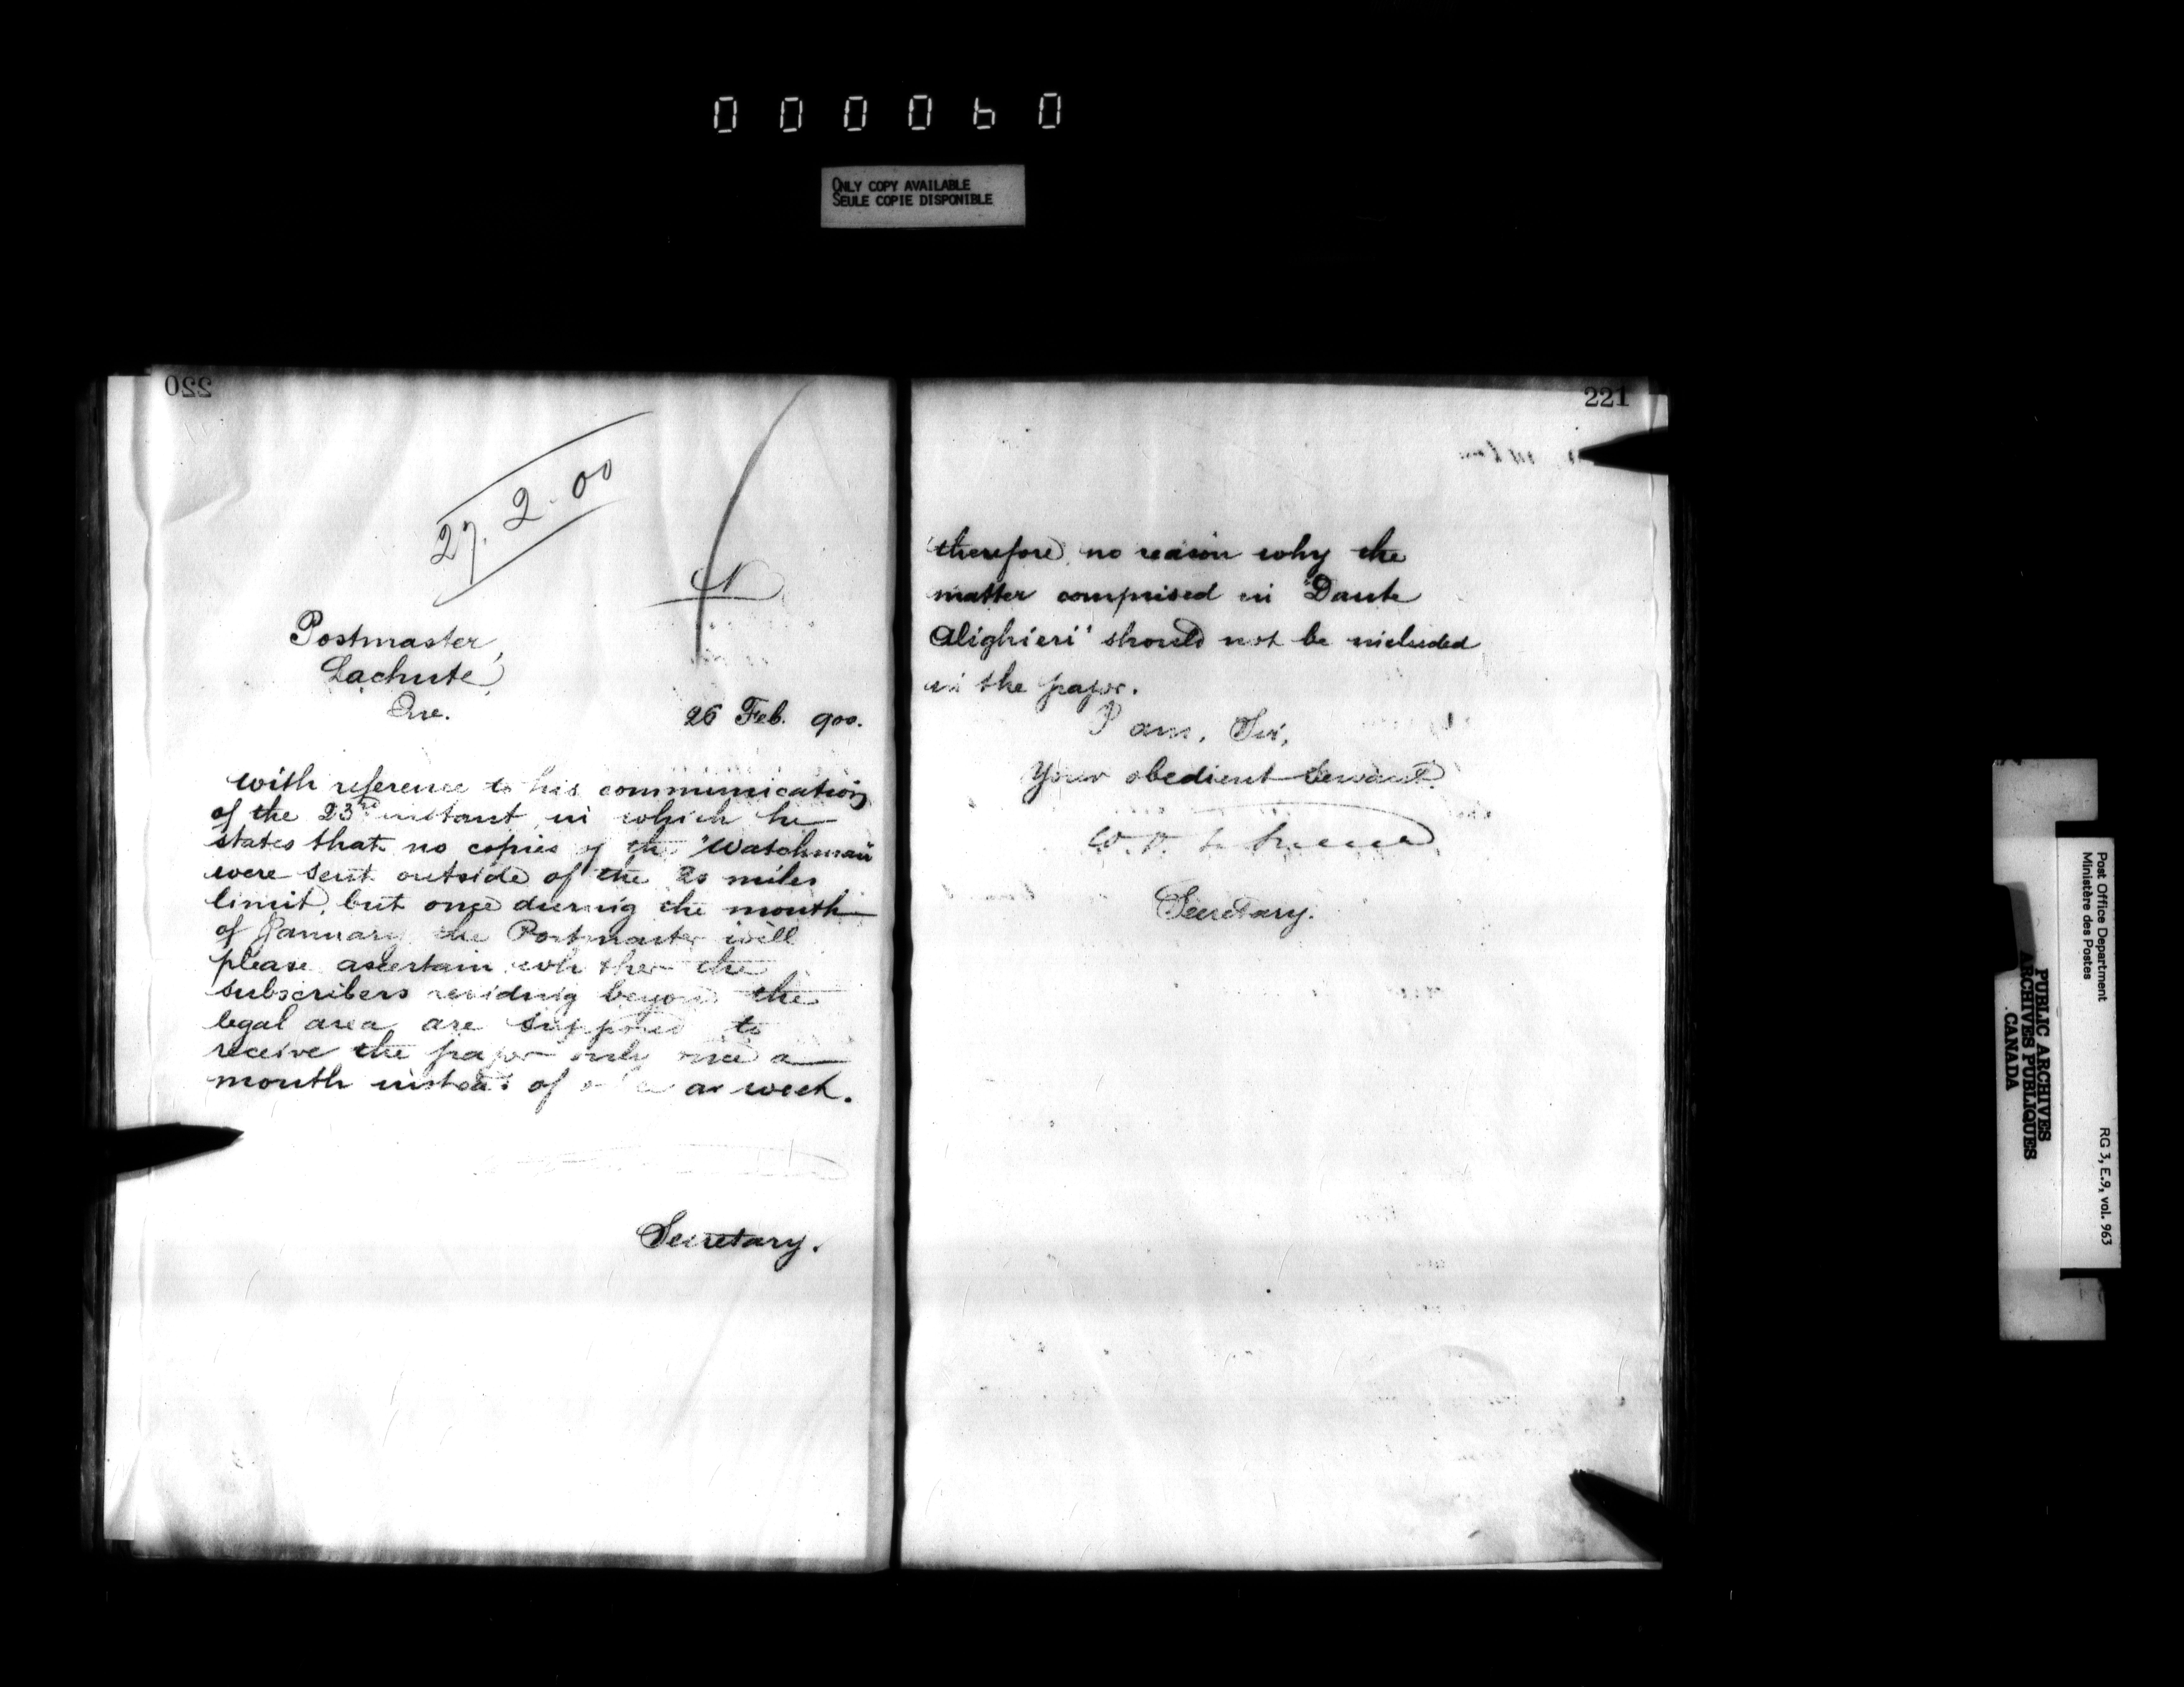 000060
ONLY COPY AVAILABLE
SEULE COPIE DISPONIBLE
220
27.2.00
N
Postmaster,
Lachute,
Que.
26 Feb. 900.
with reference to his communication
of the 23rd instant in which he
states that no copies of the "Watchman"
were sent outside of the 20 miles
limit, but once during the month
of January the Postmaster will
please ascertain whether the
subscribers residing beyond the
legal area are supposed to
receive the paper only once a
month instead of once a week.
Secretary.
221
therefore, no reason why the
matter comprised in "Dante
Alighieri" should not be included
in the paper.
I am, Sir,
Your obedient servant.
Secretary.
Post Office Department
Ministère des Postes
RG 3, E.9, vol. 963
PUBLIC ARCHIVES
ARCHIVES PUBLIQUES
CANADA